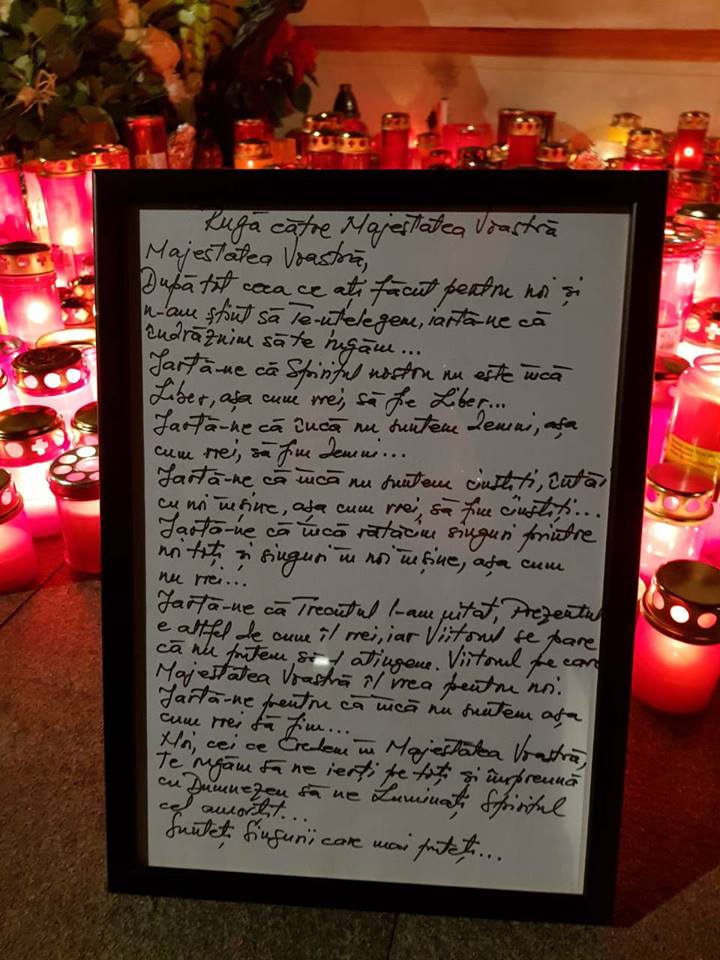 Rugă către Majestatea Voastră
Majestatea Voastră,
După tot ceea ce ați făcut pentru noi și
n-am știut să Te-nțelegem, iartă-ne că
îndrăznim să te rugăm...
Iartă-ne că Spiritul nostru nu este încă
Liber, așa cum vrei, să fie Liber...
Iartă-ne că încă nu suntem demni, așa
cum vrei, să fim demni...
Iartă-ne că încă nu suntem cinstiți, întâi
cu noi înșine, așa cum vrei, să fim cinstiți...
Iartă-ne că încă rătăcim singuri printre
noi toți și singuri în noi înșine, așa cum
nu vrei...
Iartă-ne că Trecutul l-am uitat, Prezentul
e altfel de cum îl vrei, iar Viitorul se pare
că nu putem să-l atingem. Viitorul pe care
Majestatea Voastră îl vrea pentru noi.
Iartă-ne pentru că încă nu suntem așa
cum vrei să fim...
Noi, cei ce Credem în Majestatea Voastră,
Te rugăm să ne ierți pe toți și împreună
cu Dumnezeu să ne Luminați Spiritul
cel amorțit...
Sunteți Singurii care mai puteți...